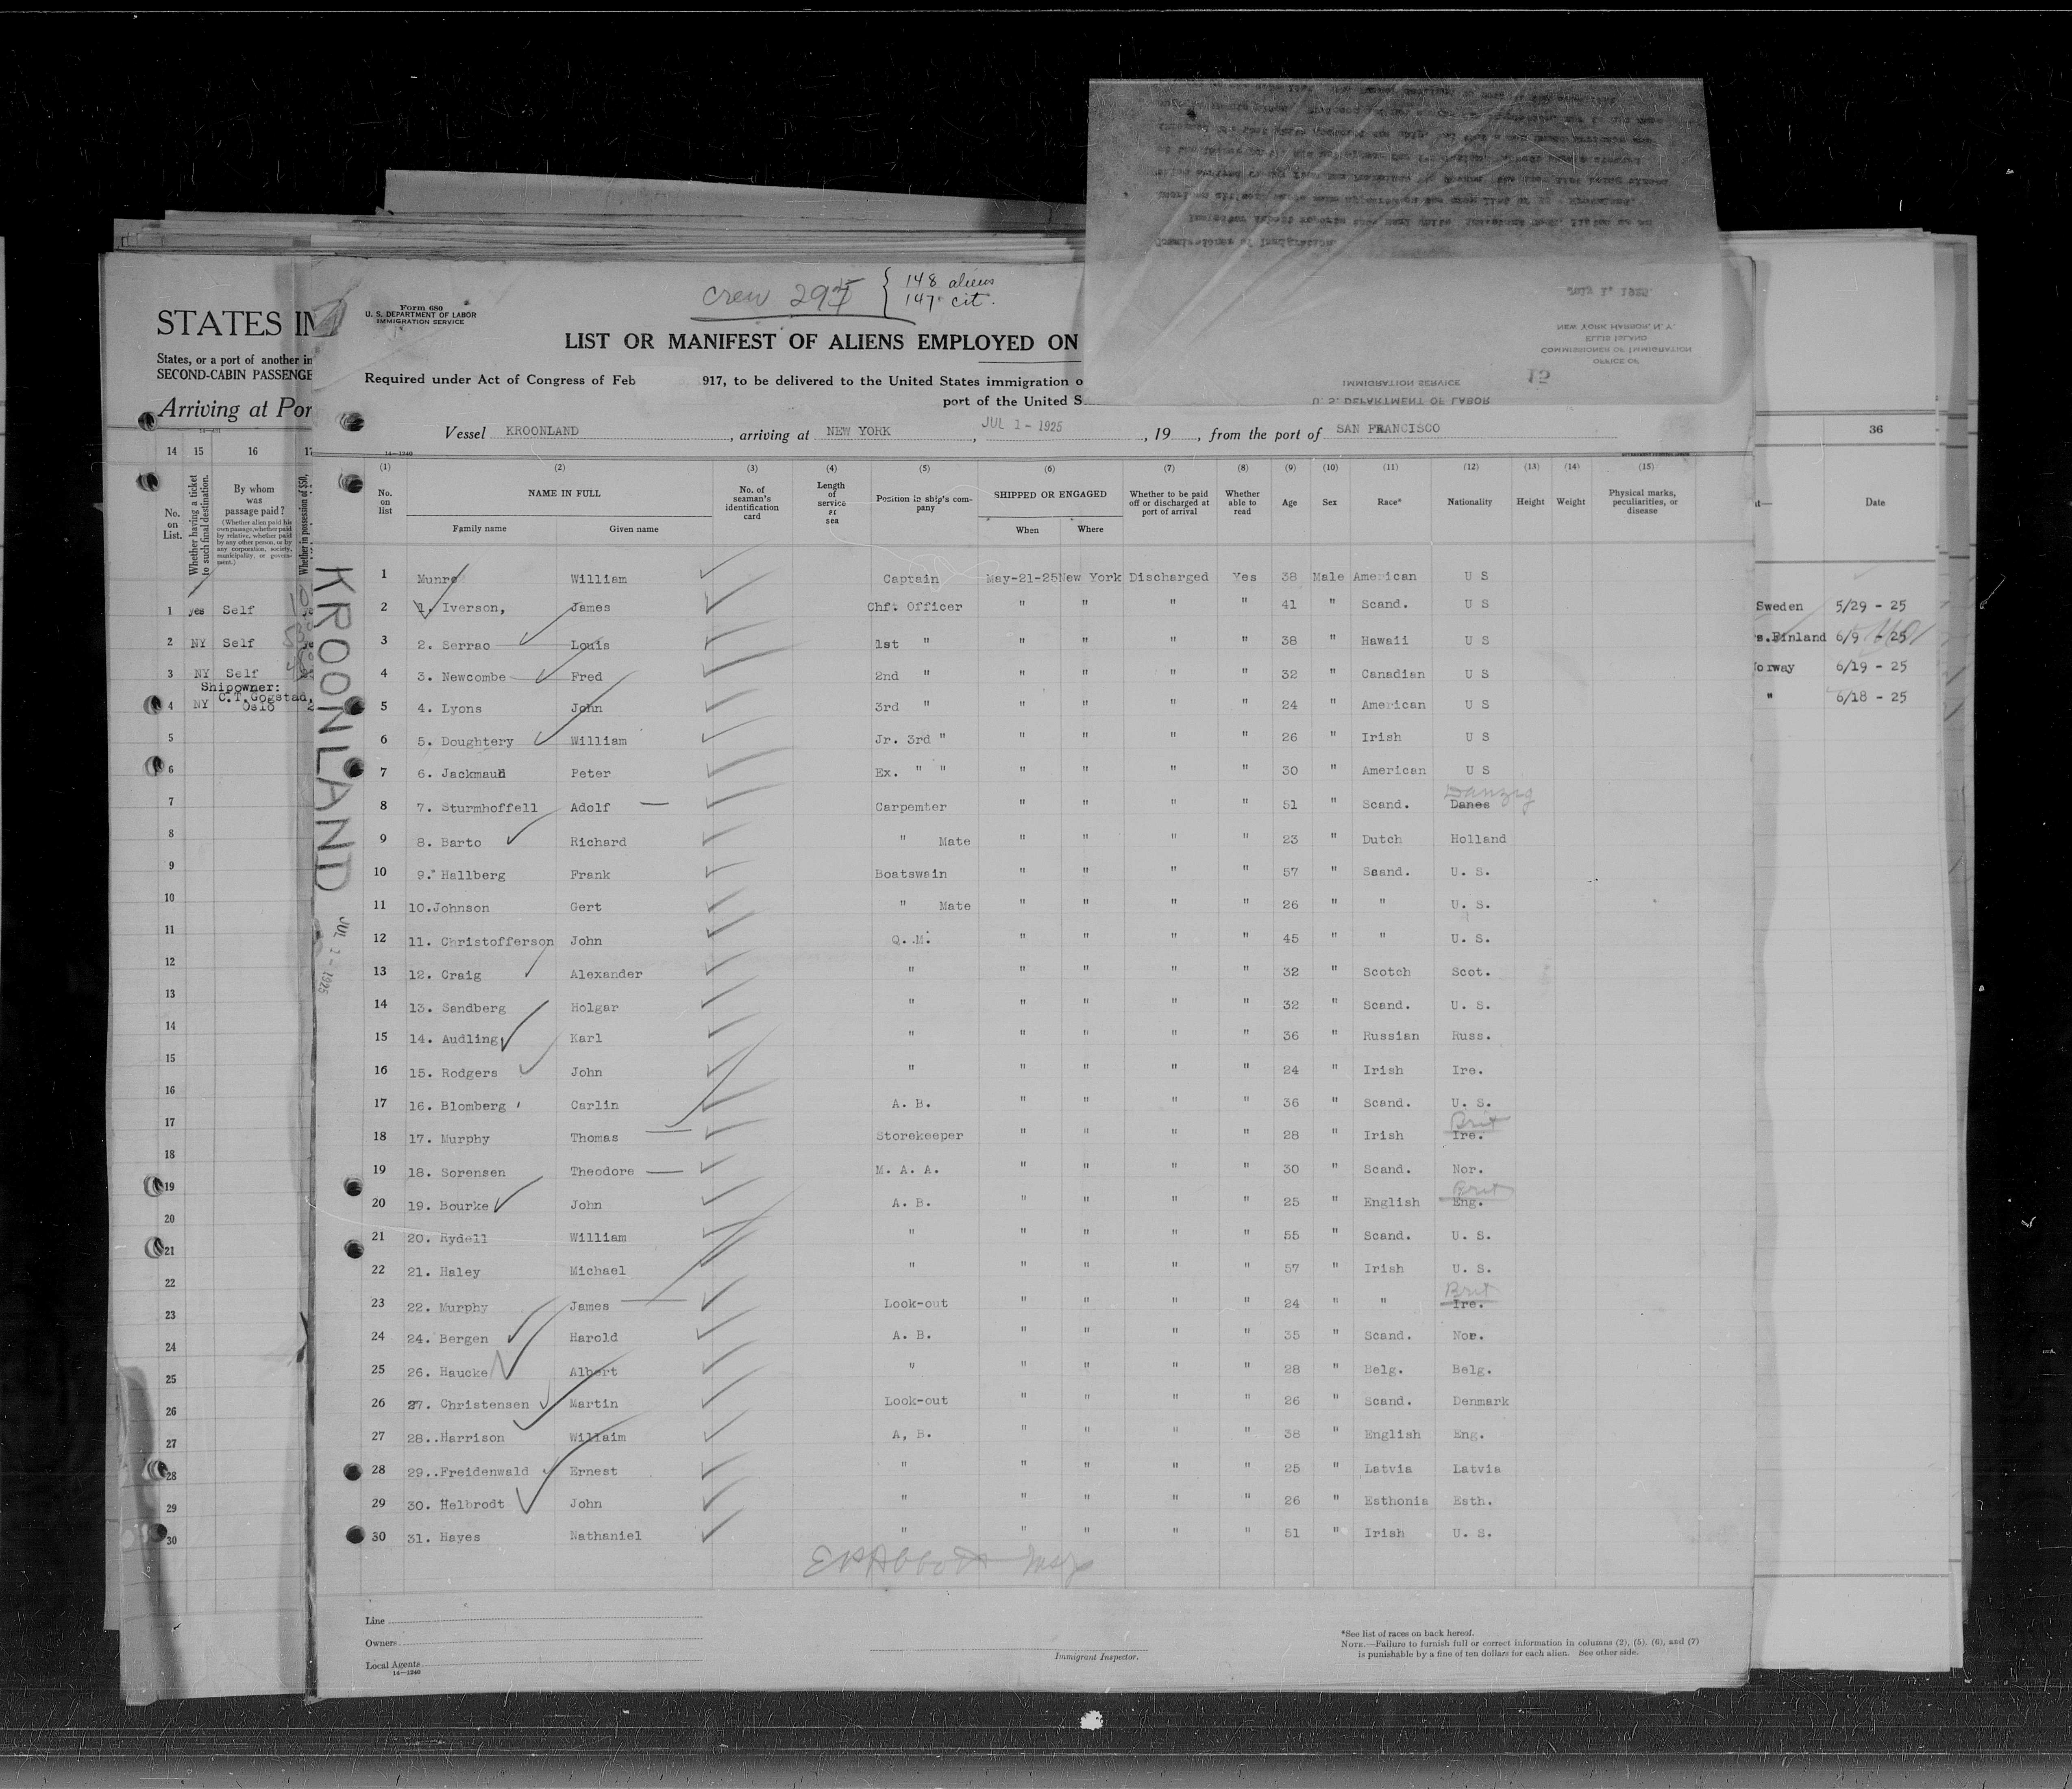 STATES IM
States, or a port of another in
SECOND-CABIN PASSENGE
Arriving at Por
14 15 16 17
No. on List.
Whether having a ticket to such final destination.
By whom was passage paid?
(Whether alien paid his own passage, whether paid by relative, whether paid by any other person, or by any corporation, society, municipality, or government.)
Whether in possession of $50,
1 yes Self
2 NY Self
3 NY Self
Shipowner:
C.T. Gogstad,
4 NY Oslo
5
6
7
8
9
10
11
12
13
14
15
16
17
18
19
20
21
22
23
24
25
26
27
28
29
30
KROONLAND
JUL 1 - 1925
Form 680
U. S. DEPARTMENT OF LABOR
IMMIGRATION SERVICE
crew 295 { 148 aliens
147 cit.
LIST OR MANIFEST OF ALIENS EMPLOYED ON
Required under Act of Congress of Feb 917, to be delivered to the United States immigration o
port of the United S
U. S. DEPARTMENT OF LABOR
IMMIGRATION SERVICE
15
OFFICE OF
COMMISSIONER OF IMMIGRATION
ELLIS ISLAND
NEW YORK HARBOR, N. Y.
July 1, 1925.
Commissioner of Immigration
Vessel KROONLAND, arriving at NEW YORK, JUL 1 - 1925, 19 , from the port of SAN FRANCISCO
14—1240
(1) (2) (3) (4) (5) (6) (7) (8) (9) (10) (11) (12) (13) (14) (15)
No. on list
NAME IN FULL
Family name Given name
No. of seaman's identification card
Length of service at sea
Position in ship's company
SHIPPED OR ENGAGED
When Where
Whether to be paid off or discharged at port of arrival
Whether able to read
Age Sex Race* Nationality Height Weight
Physical marks, peculiarities, or disease
1 Munro William Captain May-21-25 New York Discharged Yes 38 Male American U S
2 1. Iverson, James Chf. Officer " " " " 41 " Scand. U S
3 2. Serrao Louis 1st " " " " " 38 " Hawaii U S
4 3. Newcombe Fred 2nd " " " " " 32 " Canadian U S
5 4. Lyons John 3rd " " " " " 24 " American U S
6 5. Doughtery William Jr. 3rd " " " " " 26 " Irish U S
7 6. Jackmaun Peter Ex. " " " " " " 30 " American U S
8 7. Sturmhoffell Adolf Carpemter " " " " 51 " Scand. Danes Danzig
9 8. Barto Richard " Mate " " " " 23 " Dutch Holland
10 9. Hallberg Frank Boatswain " " " " 57 " Scand. U. S.
11 10. Johnson Gert " Mate " " " " 26 " " U. S.
12 11. Christofferson John Q. M. " " " " 45 " " U. S.
13 12. Craig Alexander " " " " " 32 " Scotch Scot.
14 13. Sandberg Holgar " " " " " 32 " Scand. U. S.
15 14. Audling Karl " " " " " 36 " Russian Russ.
16 15. Rodgers John " " " " " 24 " Irish Ire.
17 16. Blomberg Carlin A. B. " " " " 36 " Scand. U. S.
18 17. Murphy Thomas Storekeeper " " " " 28 " Irish Ire. Brit
19 18. Sorensen Theodore M. A. A. " " " " 30 " Scand. Nor.
20 19. Bourke John A. B. " " " " 25 " English Eng. Brit
21 20. Rydell William " " " " " 55 " Scand. U. S.
22 21. Haley Michael " " " " " 57 " Irish U. S.
23 22. Murphy James Look-out " " " " 24 " " Ire. Brit
24 24. Bergen Harold A. B. " " " " 35 " Scand. Nor.
25 26. Haucke Albert " " " " " 28 " Belg. Belg.
26 27. Christensen Martin Look-out " " " " 26 " Scand. Denmark
27 28..Harrison Willaim A, B. " " " " 38 " English Eng.
28 29..Freidenwald Ernest " " " " " 25 " Latvia Latvia
29 30. Helbrodt John " " " " " 26 " Esthonia Esth.
30 31. Hayes Nathaniel " " " " " 51 " Irish U. S.
Line
Owners
Local Agents
14—1240
Immigrant Inspector.
*See list of races on back hereof.
NOTE.—Failure to furnish full or correct information in columns (2), (5), (6), and (7)
is punishable by a fine of ten dollars for each alien. See other side.
36
Date
Sweden 5/29 - 25
s.Finland 6/9 - 25
Norway 6/19 - 25
" 6/18 - 25